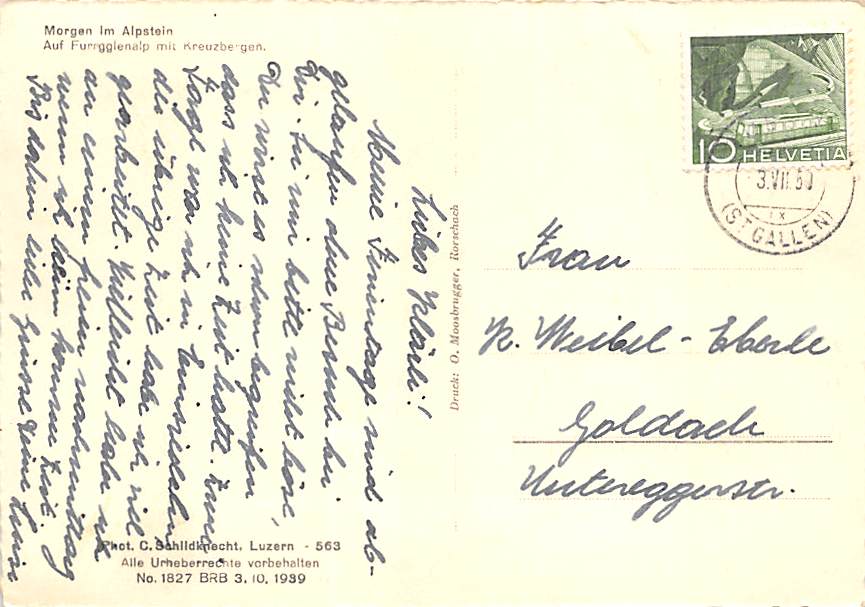 Morgen im Alpstein
Auf Furrgglenalp mit Kreuzbergen.
Liebes Klärli!
Meine Ferientage sind ab-
gelaufen ohne Besuch bei
Dir. Sei mir bitte nicht böse,
Du wirst es schon begreifen
dass ich keine Zeit hatte. Zwei
Tage war ich in Einsiedeln
die übrige Zeit habe ich viel
gearbeitet. Vielleicht habe ich
an einem freien nachmittag
wenn ich heim komme Zeit.
Bis dahin liebe Grüsse Deine Luise
Phot. C. Schildknecht, Luzern - 563
Alle Urheberrechte vorbehalten
No. 1827 BRB 3. 10. 1939
Druck: O. Moosbrugger, Rorschach
10 HELVETIA
3.VII.50
IX
(ST GALLEN)
Frau
K. Weibel - Eberle
Goldach
Untereggerstr.